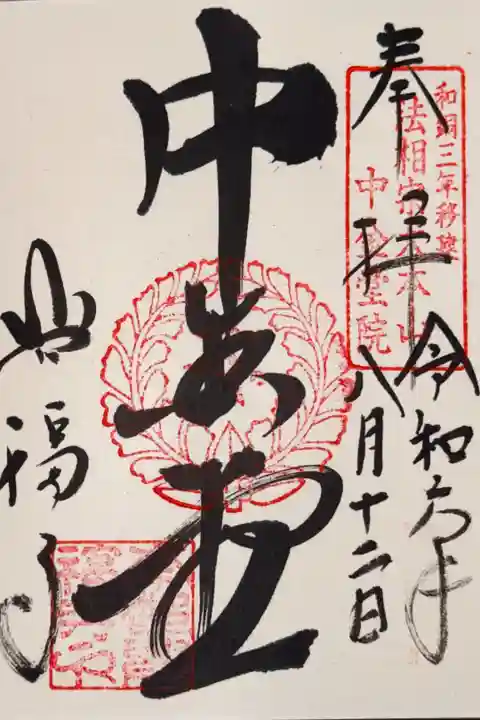 奉拝
和銅三年移建
法相宗大本山
中金堂院
令和六年
八月十二日
中金堂
興福寺